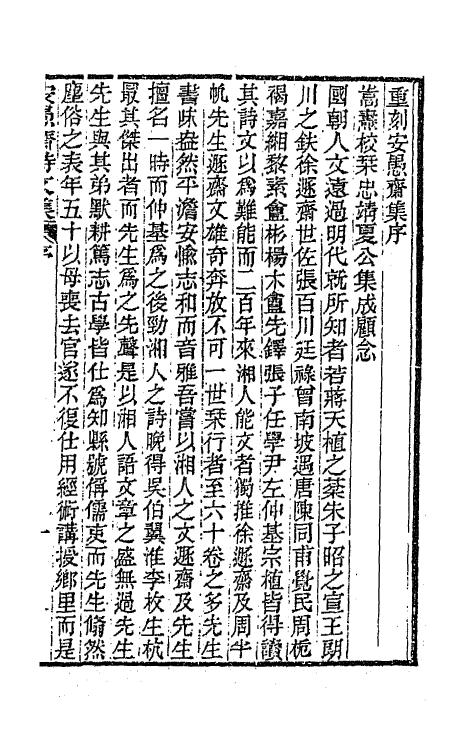 重刻安愚齋集序
嵩燾校栞忠靖夏公集成顧念
國朝人文遠過明代就所知者若蔣天植之棻朱子昭之宣王朗
川之鈇徐遯齋世佐張百川廷祿曾南坡遇唐陳同甫黌民周栀
褐嘉緗黎素盦彬楊木盦先鐸張子任學尹左仲基宗植皆得讀
其詩文以爲難能而二百年來湘人能文者獨推徐遯齋及周半
帆先生遯齋文雄奇奔放不可一世栞行者至六十卷之多先生
書味盎然平澹安愉志和而音雅吾嘗以湘人之文遯齋及先生
擅名一時而仲基爲之後勁湘人之詩晚得吳伯翼淮李枚生杭
最其傑出者而先生爲之先聲是以湘人語文章之盛無過先生
先生與其弟默耕篤志古學皆仕爲知縣號偁儒吏而先生翛然
塵俗之表年五十以母喪去官遂不復仕用經術講授鄉里而是
安愚齋詩文集 序 一